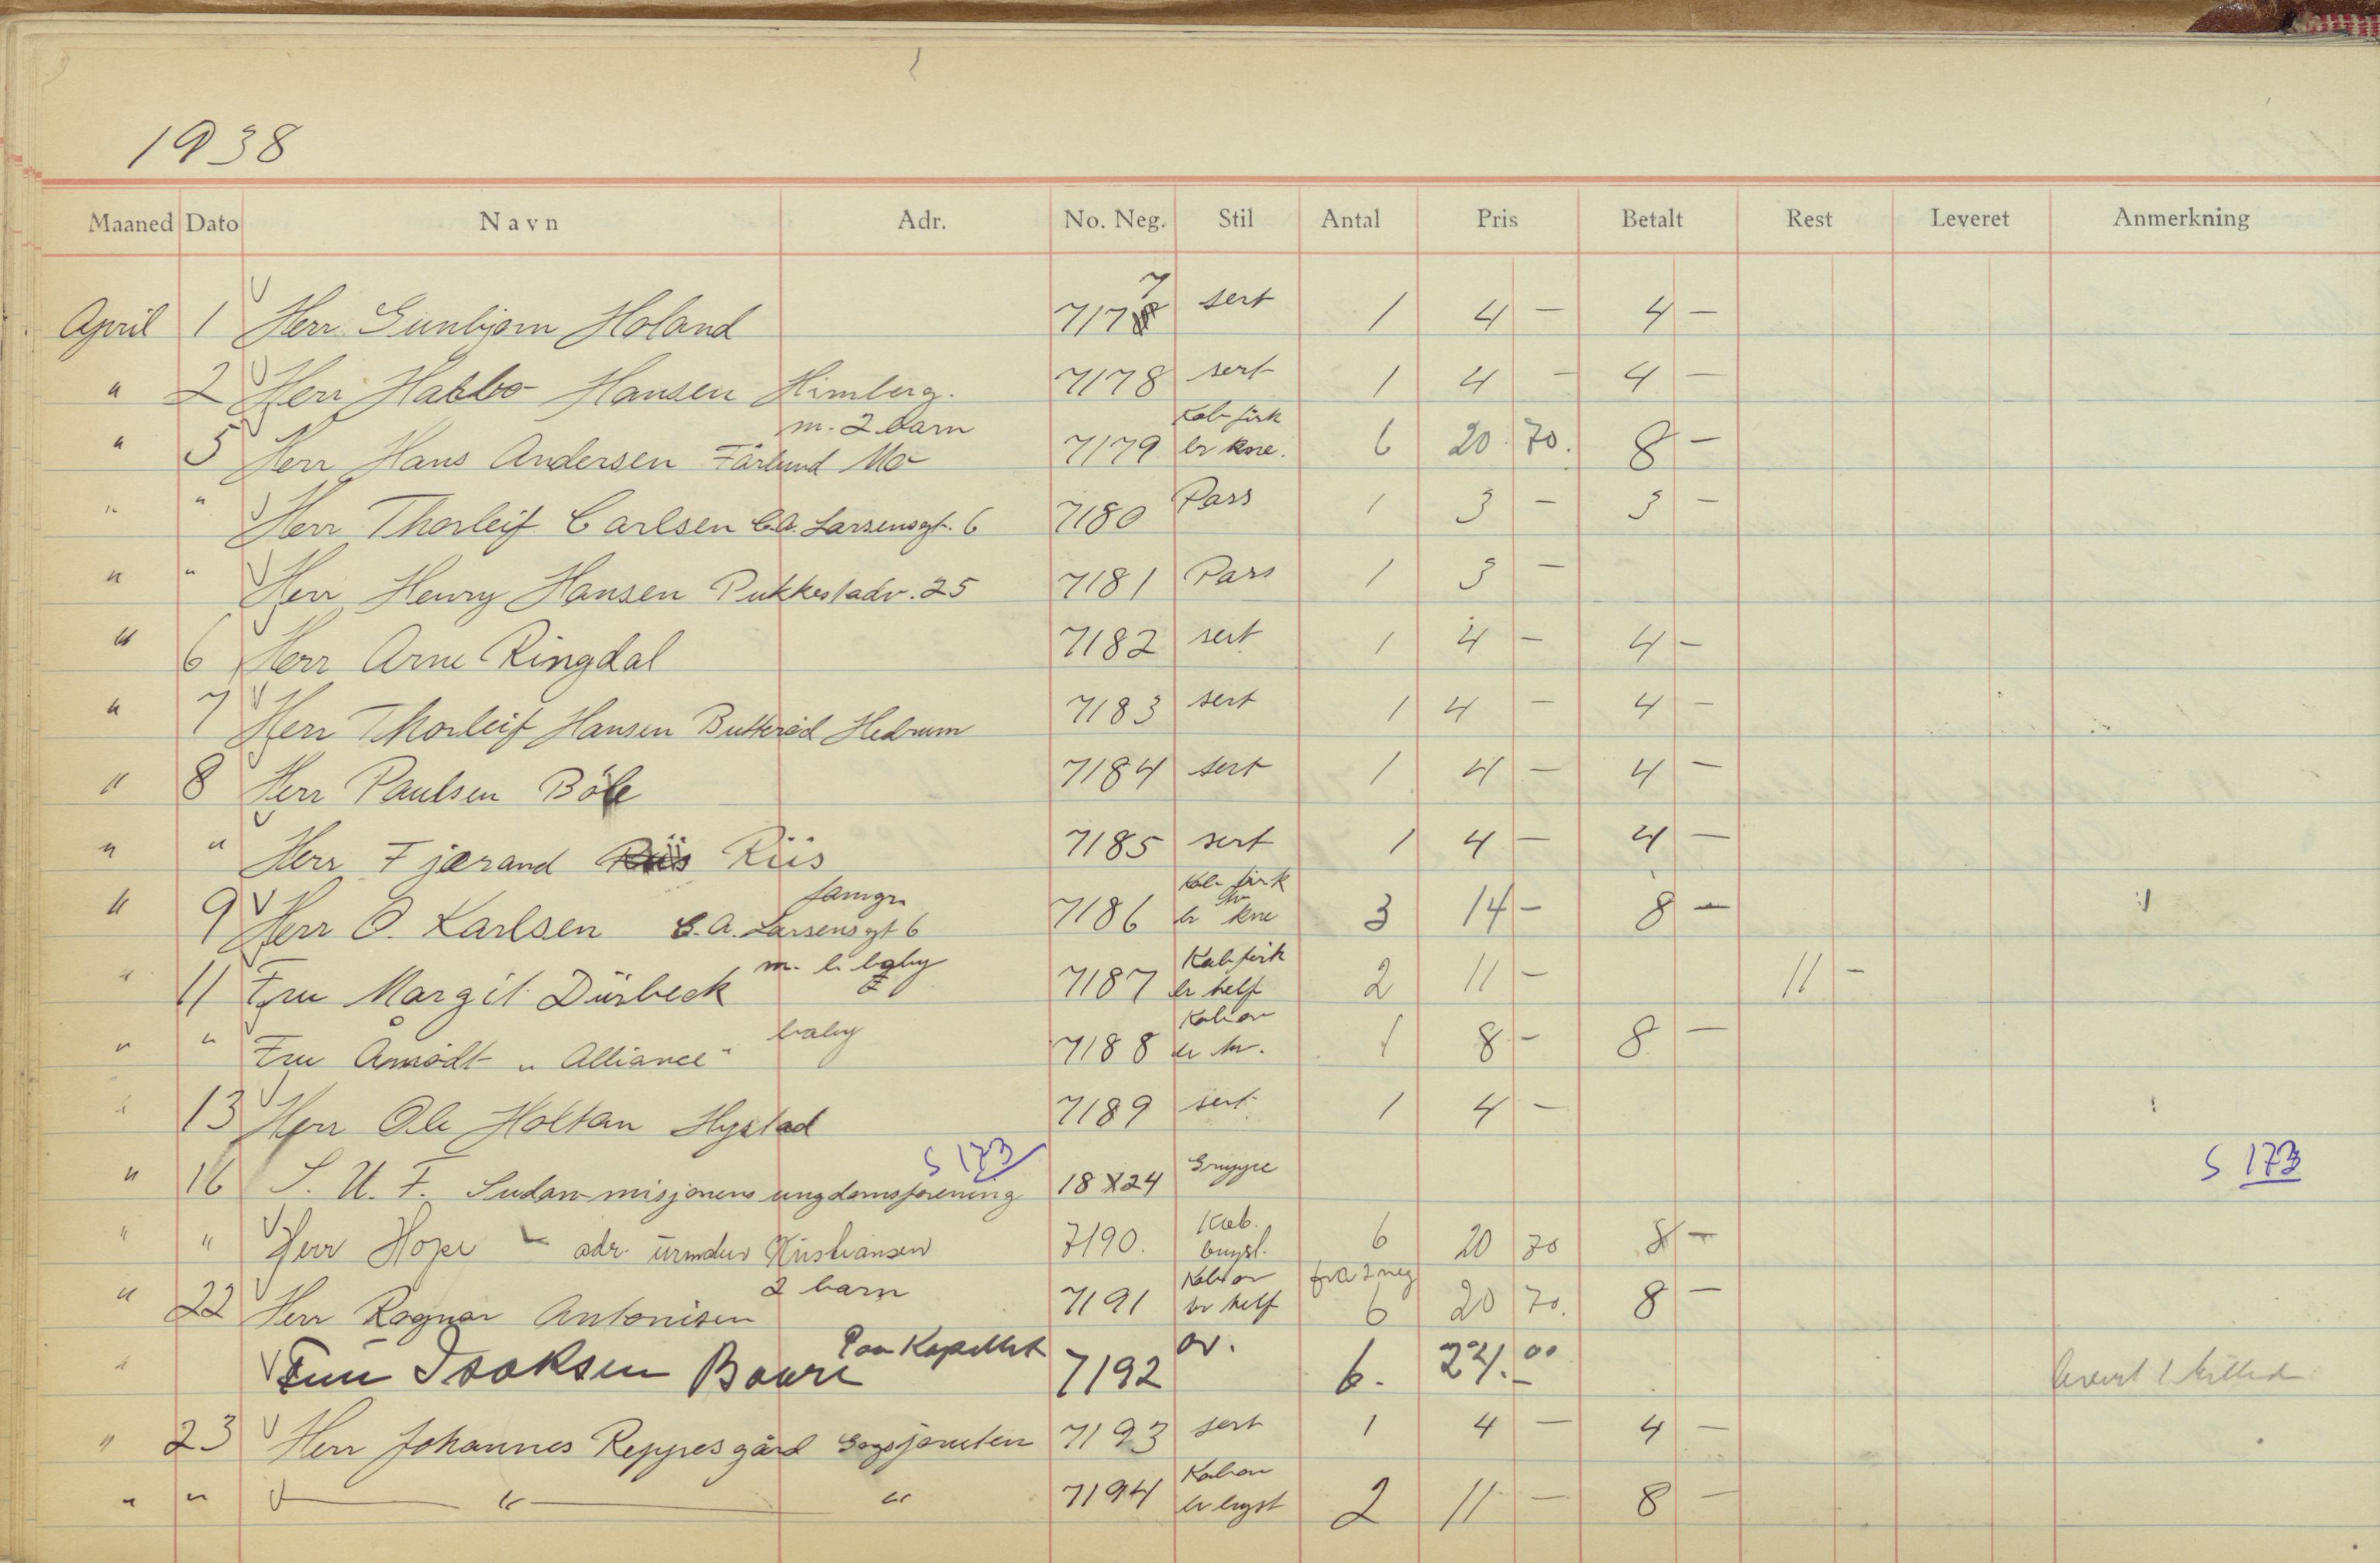 1938
Maaned Dato Navn Adr. No. Neg. Stil Antal Pris Betalt Rest Leveret Anmerkning
April 1 Herr Gunbjørn Holand 7177 sert 1 4 – 4 –
" 2 Herr Habbo Hansen Himberg. 7178 sert 1 4 – 4 –
m. 2 barn Kab firk
" 5 Herr Hans Andersen Färlund Mo 7179 br kne. 6 20 70. 8 –
" " Herr Thorleif Carlsen C.A. Larsensgt. 6 7180 Pass 1 3 – 3 –
" " Herr Henry Hansen Pukkestadv. 25 7181 Pass 1 3 –
" 6 Herr Arne Ringdal 7182 sert 1 4 – 4 –
" 7 Herr Thorleif Hansen Butteröd Hedrum 7183 sert 1 4 – 4 –
" 8 Herr Paulsen Böle 7184 sert 1 4 – 4 –
" " Herr Fjærand Riis 7185 sert 1 4 – 4 –
famgr. Kab firk
" 9 Herr O. Karlsen C.A. Larsensgt 6 7186 br kne 3 14 – 8 –
m. l. baby Kab firk
" 11 Fru Margit Dürbeck 7187 br helf 2 11 – 11 –
baby Kab ov
" " Fru Amödt "Alliance" 7188 br br. 1 8 – 8 –
" 13 Herr Ole Holtan Hystad 7189 sert 1 4 –
S 173 S 173
" 16 S. U. F. Sudan-misjonens ungdomsforening 18 X 24 Gruppe
" " Herr Hope adr. urmaker Kristiansen 7190. Kab. bryst. 6 20 70 8 –
2 barn Kab ov fra 2 neg
" 22 Herr Ragnar Antonisen 7191 br helf 6 20 70. 8 –
Paa Kapellet
" Fru Isaksen Baure 7192 ov. 6. 24.00 levert 1 billed
" 23 Herr Johannes Reppesgård 7193 sert 1 4 – 4 –
Kab ov
" " " " 7194 br bryst 2 11 – 8 –